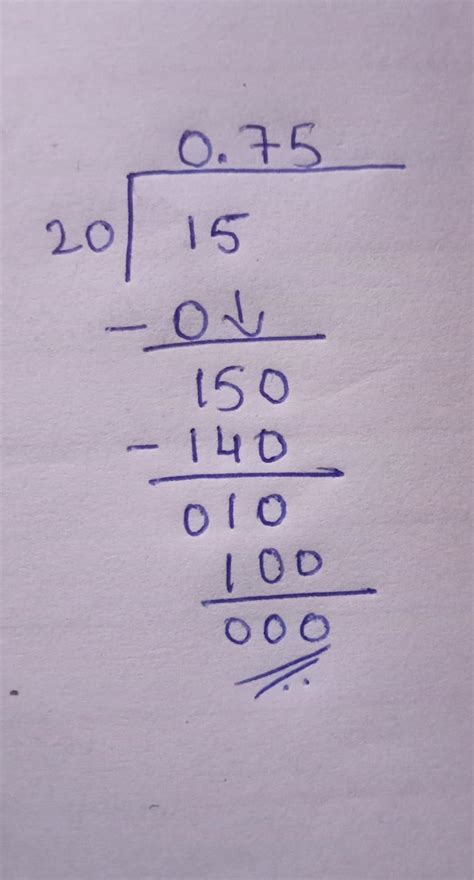 0.75
20 15
- 0↓
150
- 140
010
100
000